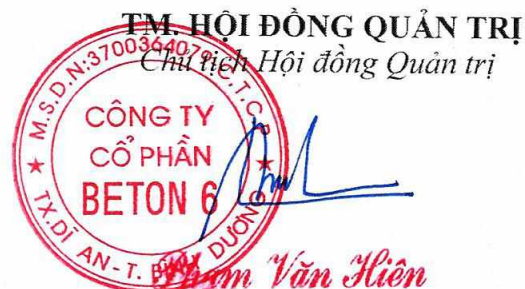 TM. HỘI ĐỒNG QUẢN TRỊ
Chủ tịch Hội đồng Quản trị
M.S.D.N:3700364079-C.T.C.P
CÔNG TY
CỔ PHẦN
BETON 6
TX.DĨ AN - T. BÌNH DƯƠNG
Phạm Văn Hiên